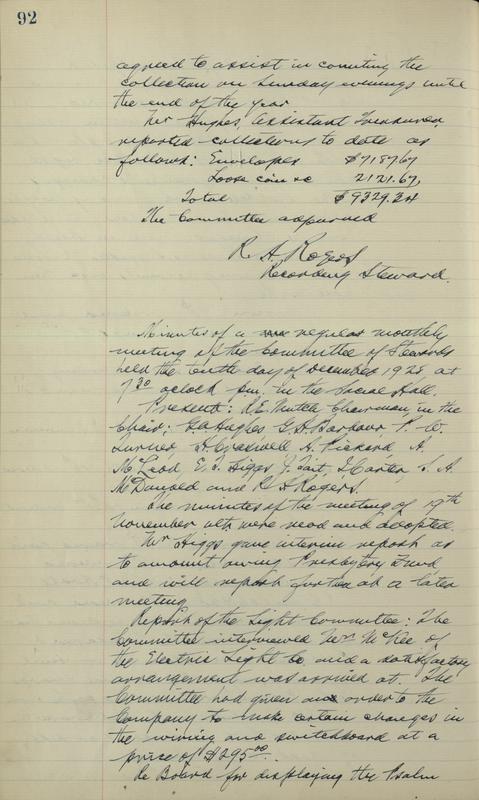 92
agreed to assist in counting the
collection on Sunday evenings until
the end of the year
Mr Hughes, Assistant Treasurer,
reported collections to date as
follows: Envelopes $7187.67
Loose coin &c 2121.67
Total $9329.34
The Committee adjourned
R. A. Rogers
Recording Steward.
Minutes of a regular monthly
meeting of the Committee of Stewards
held the tenth day of December 1928 at
7 30 oclock p.m. in the Social Hall.
Present: R.E. Mutch Chairman in the
Chair; G. A. Hughes G. H. Barbour P. W.
Turner, H. Craswell A. Pickard, A.
McLeod E. T. Higgs J. Tait, J. Carter, S. A.
McDonald and R. A. Rogers.
The minutes of the meeting of 19th
November ult. were read and adopted.
Mr Higgs gave interim report as
to amount owing Presbytery Fund
and will report further at a later
meeting
Report of the Light Committee: The
Committee interviewed Mr. McKee of
the Electric Light Co. and a satisfactory
arrangement was arrived at. The
Committee had given an order to the
Company to make certain changes in
the wiring and switchboard at a
price of $295.00.
Re Board for displaying the Psalm